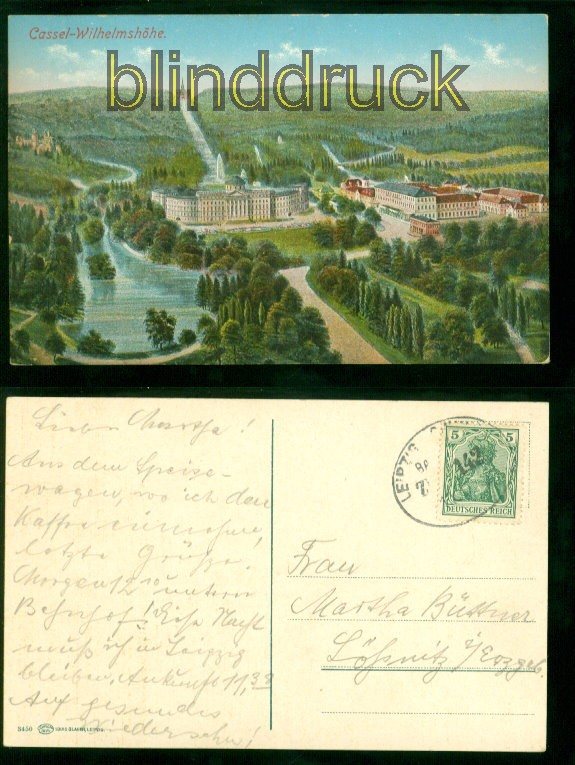 Cassel-Wilhelmshöhe.
blinddruck
Aus dem Speise-
wagen, wo ich den
Kaffee einnehme,
letzte Grüße.
Morgen 12 unterm
Bahnhof! Diese Nacht
muß ich in Leipzig
bleiben, Ankunft 11,33
Auf gesundes
Wiedersehn!
LEIPZIG
142
5 5
DEUTSCHES REICH
Frau
Martha Büttner
Lößnitz i/Erzgeb.
5450